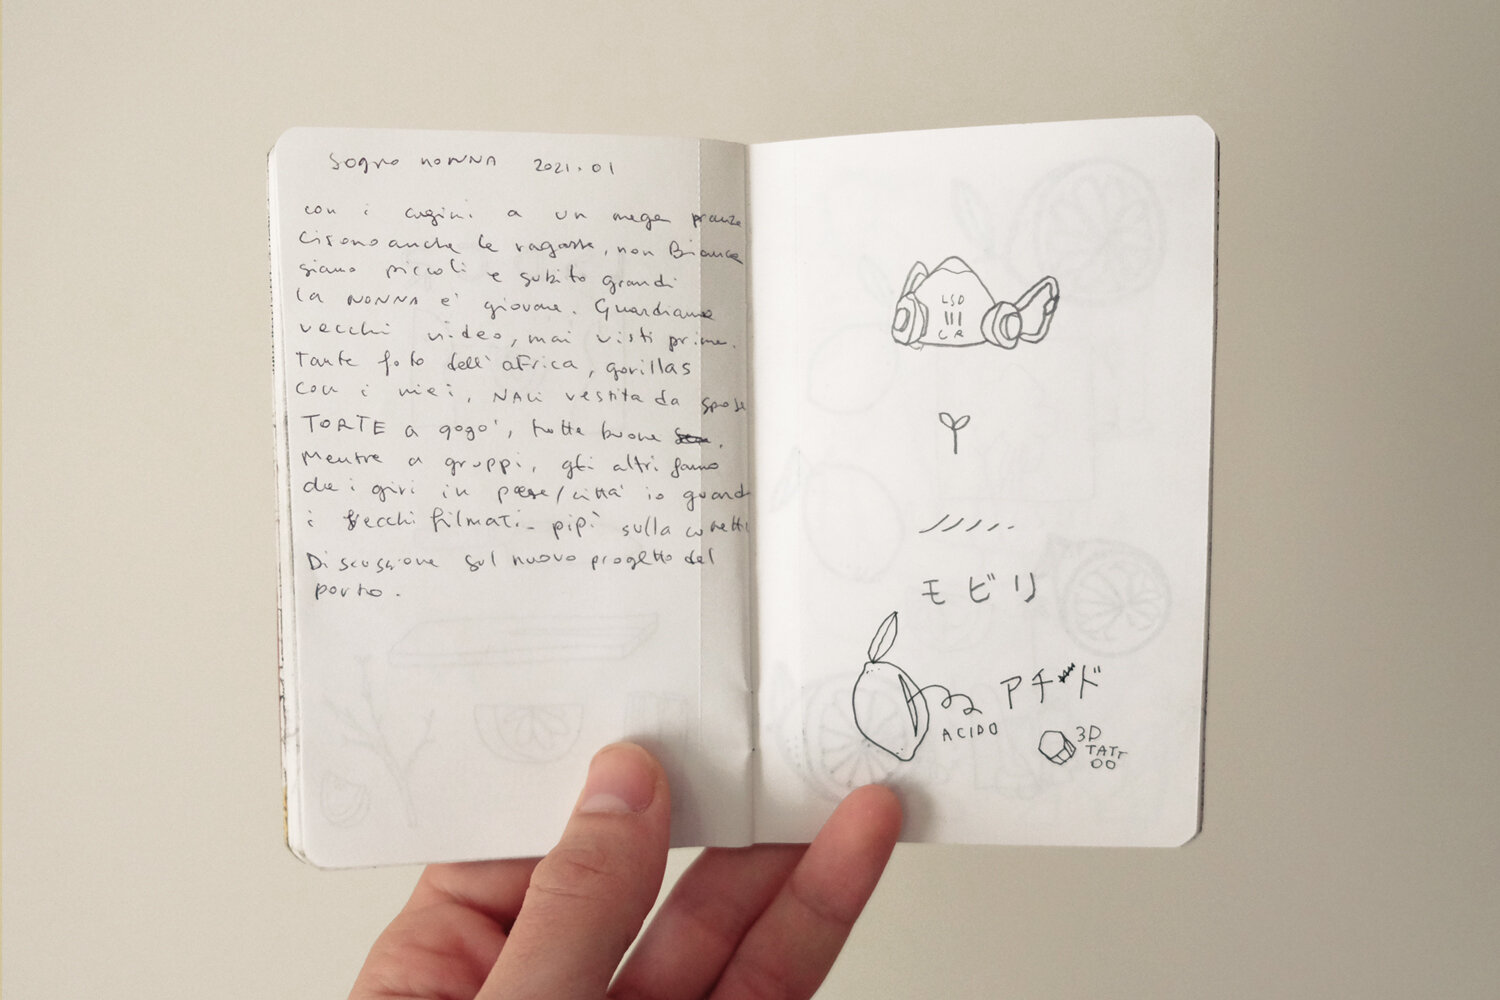 Sogno NONNA 2021.01
con i cugini a un mega pranzo
Ci sono anche le ragazze, non Bianca
siamo piccoli e subito grandi
la NONNA e' giovane. Guardiamo
vecchi video, mai visti prima.
Tante foto dell'aFrica, gorillas
con i miei, vestita da sposa
TORTE a gogo', tutte buone.
Mentre a gruppi, gli altri fanno
dei giri in paese/citta' io guardo
i vecchi filmati. pipì sulla
Discussione sul nuovo progetto del
porto.
LSD
モビリ
アチド
ACIDO
3D
TATT
OO